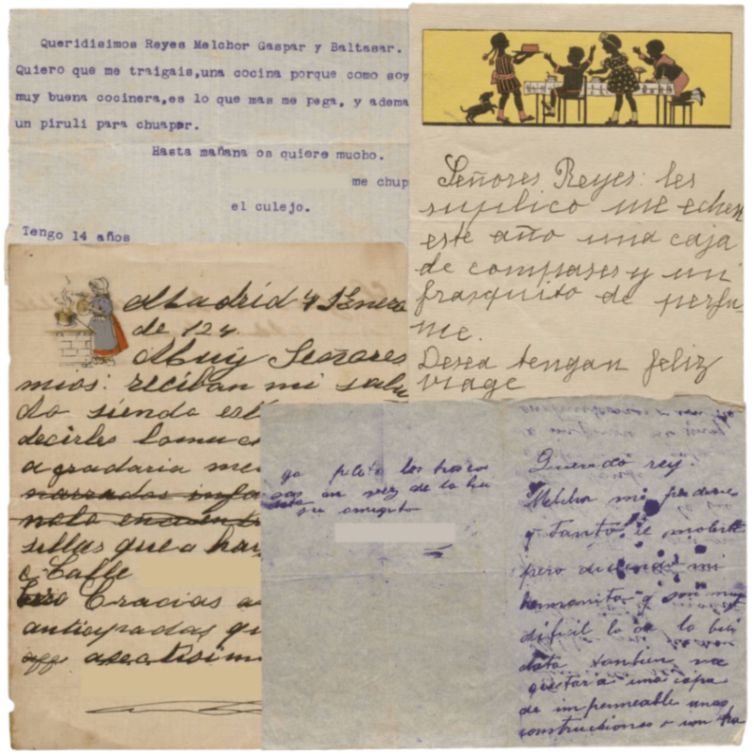 Queridisimos Reyes Melchor Gaspar y Baltasar.
Quiero que me traigais,una cocina porque como soy
muy buena cocinera,es lo que mas me pega, y adema
un piruli para chuapar.
Hasta mañana os quiere mucho.
me chup
el culejo.
Tengo 14 años
Señores Reyes: les
suplico me echen
este año una caja
de compases y un
frasquito de perfu-
me.
Desea tengan feliz
viage
Madrid 4 Enero
de 124
Muy Señores
mios: reciban mi salu
do siendo est
decirles lo mu
agradaria me
sillas que a ha
Caffe
Gracias a
anticipadas qu
ya pido los
en vez de la
su amiguito
Querido rey.
Melchor mi perdone
y tanto le moleste
pero
hermanito y son muy
dificil lo de la bici
cleta tambien me
gustaria una capa
de impermeable unas
construcciones o un